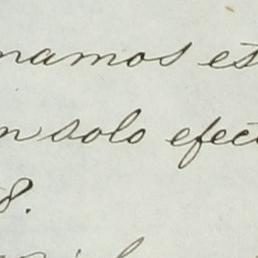 namos es
n solo efect
8.